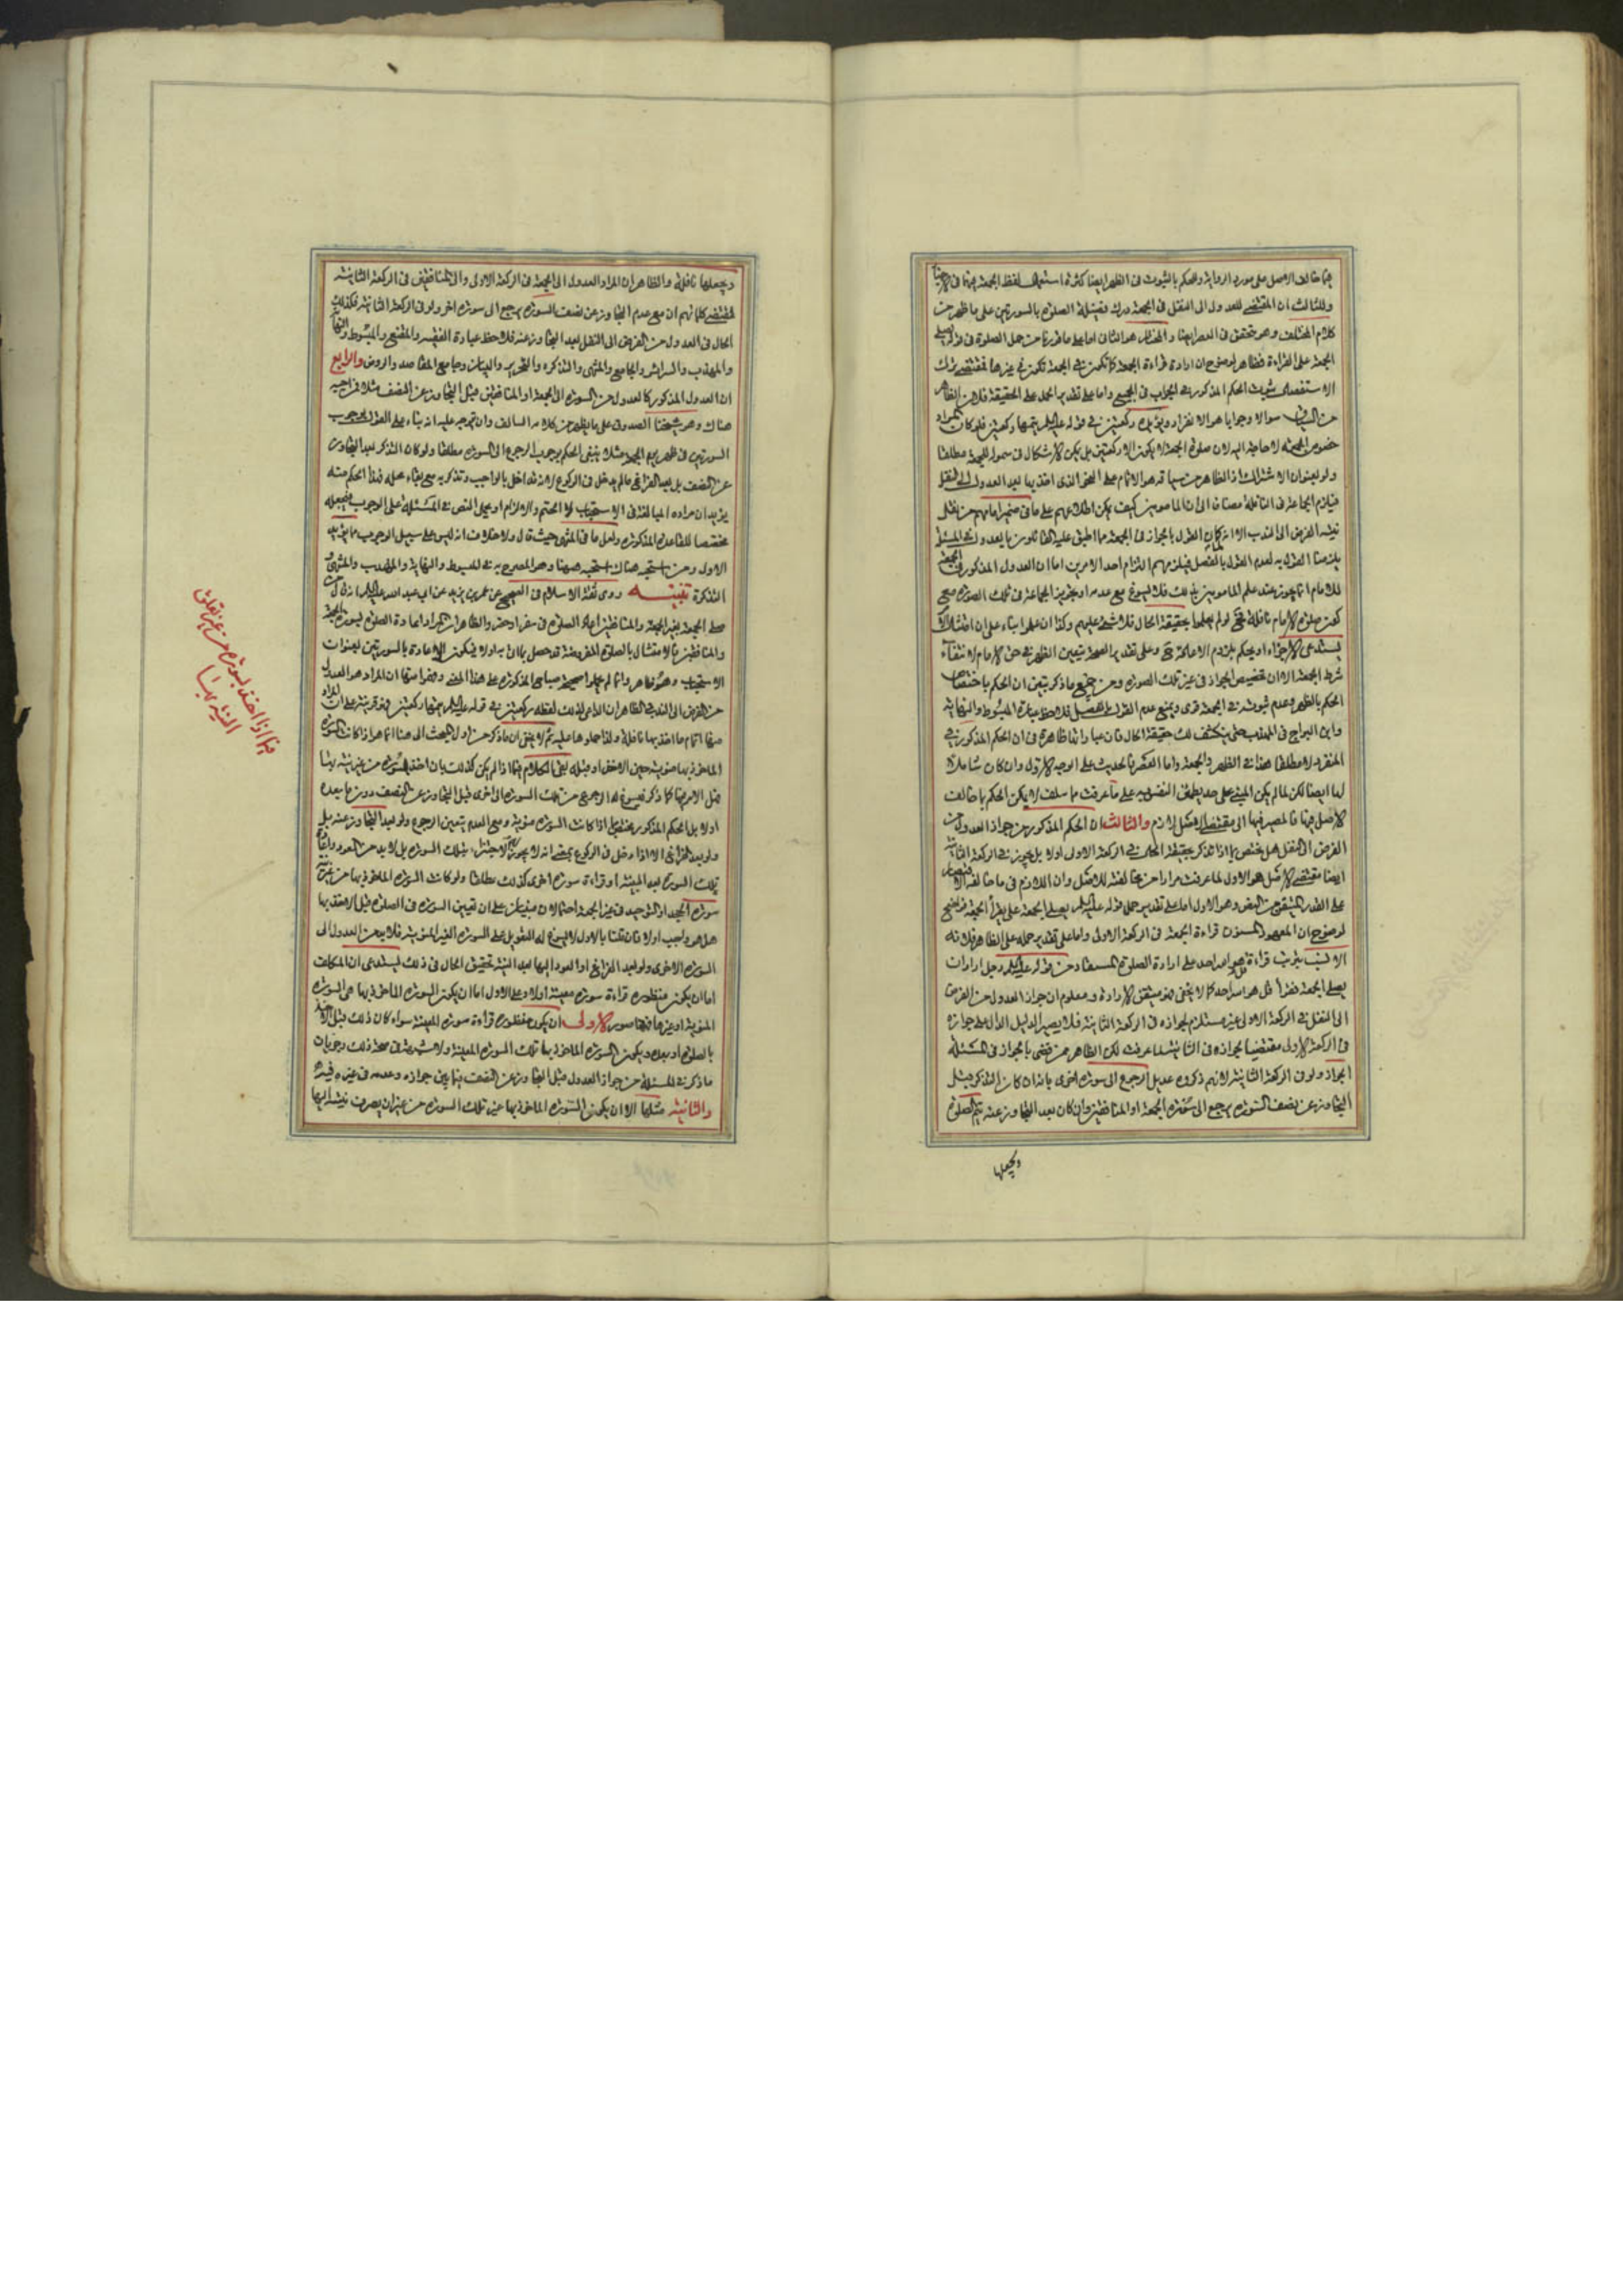 فيما خالف الاصل على مورد الرواية والحكم بالثبوت في الظهر ايضا كثرة استعمال لفظ الجمعة فيها في
وللثالث ان المقتضي للعدول الى النفل في الجمعة درك فضيلة الصلوة بالسورتين على ما ظهر من
كلام المختلف وهو متحقق في العصر ايضا والمختار هو الثاني اما على ما قررنا من حمل الصلوة في قوله يصلي
الجمعة على القراءة فظاهر لوضوح ان ارادة قراءة الجمعة كما تكون في الجمعة تكون في غيرها فمقتضى ترك
الاستفصال ثبوت الحكم المذكور في الجواب في الجميع واما على تقدير الحمل على الحقيقة فلان الظاهر
من السياق سوالا وجوابا هو الانفراد ويؤيده ركعتين في قوله عليه السلم يتمها ركعتين فلو كان المراد
خصوص الجمعة لا حاجة اليه لان صلوة الجمعة لا يكون الا ركعتين بل يمكن الاشكال في شموله للجمعة مطلقا
ولو بعنوان الاشتراك اذ الظاهر من سياقه هو الاتمام على النحو الذي اخذ بها بعد العدول الى النفل
فيلزم الجماعة في النافلة مضافا الى ان المامومين كيف يمكن اطلاعهم على ما في ضمير امامهم من نقل
نية الفرض الى الندب الا انه لما كان القول بالجواز في الجمعة مما اطبق عليه القائلون بالعدول في المسئلة
يلزمنا القول به لعدم القول بالفصل فيلزمهم التزام احد الامرين اما ان العدول المذكور في الجمعة
للامام انما يجوز عند علم المامومين بذلك فلا يسوغ مع عدمه او تجويز الجماعة في تلك الصورة مع
كون صلوة الامام نافلة حتى لو لم يعلموا بحقيقة الحال فلا شئ عليهم وكذا ان علموا بناء على ان امتثال الامر
يستدعي الاجزاء او يحكم بلزوم الاعادة ح وعلى تقدير الصحة يتعين الظهر في حق الامام لانتفاء
شرط الجمعة الا ان تخصيص الجواز في غير تلك الصورة ومن جميع ما ذكر يتبين ان الحكم باختصاص
الحكم بالظهر وعدم ثبوته في الجمعة قوى ويمنع عدم القول بالفصل فلاحظ عبارة المبسوط والنهاية
وابن البراج في المهذب حتى ينكشف لك حقيقة الحال فان عباراتها ظاهرة في ان الحكم المذكور في
المنفرد لا مطلقا هذا في الظهر والجمعة واما العصر فالحديث على الوجه الاول وان كان شاملا
لها ايضا لكن لما لم يكن المبنى على حد يطمئن النفس به على ما عرفت مما سلف لا يمكن الحكم بما خالف
الاصل فيها فالمصير فيها الى مقتضى الاصل لازم والثالث ان الحكم المذكور من جواز العدول من
الفرض الى النفل هل يختص بما اذا تذكر بحقيقة الحال في الركعة الاولى او لا بل يجوز في الركعة الثانية
ايضا مقتضى الاصل هو الاول لما عرفت مرارا من مخالفته للاصل وان اللازم في ما خالفه الاقتصار
على القدر المتيقن من النص وهو الاول اما على تقدير حمل قوله عليه السلم يصلي الجمعة على يقرأ الجمعة فواضح
لوضوح ان المعهود المسنون قراءة الجمعة في الركعة الاولى واما على تقدير حمله على الظاهر فلانه
الانسب بترتب قراءة قل هو الله احد على ارادة الصلوة المستفاد من قوله عليه السلم رجل اراد ان
يصلي الجمعة فقرأ قل هو الله احد كما لا يخفى فهو متيقن الارادة ومعلوم ان جواز العدول من الفرض
الى النفل في الركعة الاولى غير مستلزم لجوازه في الركعة الثانية فلا يصير الدليل الدال على جوازه
في الركعة الاولى مقتضيا لجوازه في الثانية لما عرفت لكن الظاهر ممن قضى بالجواز في المسئلة
الجواز ولو في الركعة الثانية لانهم ذكروه عديل الرجوع الى سورة اخرى بانه ان كان التذكر قبل
التجاوز عن نصف السورة يرجع الى سورة الجمعة او المنافقين وان كان بعد التجاوز عنه يتم الصلوة
ويجعلها
ويجعلها نافلة والظاهر ان المراد العدول الى الجمعة في الركعة الاولى والى المنافقين في الركعة الثانية
فمقتضى كلماتهم ان مع عدم التجاوز عن نصف السورة يرجع الى سورة اخر ولو في الركعة الثانية فكذلك
الحال في العدول من الفرض الى النفل بعد التجاوز عنه فلاحظ عبارة الفقيه والمقنع والمبسوط والنهاية
والمهذب والسرائر والجامع والمنتهى والتذكرة والتحرير والبيان وجامع المقاصد والروض والرابع
ان العدول المذكور كالعدول من السورة الى الجمعة او المنافقين قبل التجاوز عن النصف مثلا فمن اوجبه
هناك وهو شيخنا الصدوق على ما يظهر من كلامه السالف وان توجه عليه انه بناء على القول بوجوب
السورتين في ظهر يوم الجمعة مثلا ينبغي الحكم بوجوب الرجوع الى السورة مطلقا ولو كان التذكر بعد التجاوز
عن النصف بل بعد الفراغ ما لم يدخل في الركوع لانه قد اخل بالواجب وتذكر به مع بقاء محله فهذا الحكم منه
يؤيد ان مراده المبالغة في الاستحباب لا الحتم والالزام او يحمل النص في المسئلة على الوجوب فيجعله
مخصصا للقاعدة المذكورة ولعل ما في المنتهى حيث قال ولا خلاف انه ليس على سبيل الوجوب مما يؤيد
الاول ومن استحبه هناك استحبه ههنا وهو المصرح به في المبسوط والنهاية والمهذب والمنتهى و
التذكرة تنبيه روى ثقة الاسلام في الصحيح عن عمر بن يزيد عن ابي عبد الله عليه السلم انه قال من
صلى الجمعة بغير الجمعة والمنافقين اعاد الصلوة في سفر او حضر والظاهر ان المراد اعادة الصلوة بسورة الجمعة
والمنافقين فالامتثال بالصلوة المفروضة قد حصل بما اتى به اولا فيكون الاعادة بالسورتين بعنوان
الاستحباب وهو ظاهر وانما لم يحملوا صحيحة صباح المذكورة على هذا المعنى وفهموا منها ان المراد هو العدول
من الفرض الى الندب الظاهر ان الداعي لذلك لفظة ركعتين في قوله عليه السلم يتمها ركعتين فهو قرينة على ان المراد
منها اتمام ما اخذ بها نافلة ولذا حملوها عليه ثم لا يخفى ان ما ذكر من اول المبحث الى هنا انما هو اذا كانت السورة
الماخوذ بها منوية حين الاخذ او قبله بقي الكلام فيما اذا لم يكن كذلك بان اخذ السورة من غير نية بها
فهل الامر فيها كما ذكر فيسوغ له الرجوع من تلك السورة الى اخرى قبل التجاوز عن النصف دون ما بعده
او لا بل الحكم المذكور مختص بما اذا كانت السورة منوية ومع العدم يتعين الرجوع ولو بعد التجاوز عنه بل
ولو بعد الفراغ الا اذا دخل في الركوع بمعنى انه لا يجوز له الاجتزاء بتلك السورة بل لا بد من العود واتيان
تلك السورة بعد النية او قراءة سورة اخرى كذلك مطلقا ولو كانت السورة الماخوذ بها من غير نية
سورة الجحد او التوحيد في غير الجمعة احتمالان مبنيان على ان تعيين السورة في الصلوة قبل الاخذ بها
هل هو واجب او لا فان قلنا بالاول لا يسوغ له التعويل على السورة الغير المنوية فلا بد من العدول الى
السورة الاخرى ولو بعد الفراغ او العود اليها بعد النية تحقيق الحال في ذلك يستدعى ان المكلف
اما ان يكون منظوره قراءة سورة معينة او لا وعلى الاول اما ان يكون السورة الماخوذ بها هي السورة
المنوية او غيرها فههنا صور الاولى ان يكون منظوره قراءة سورة المعينة سواء كان ذلك قبل الاخذ
بالصلوة او بعده ويكون السورة الماخوذ بها تلك السورة المعينة ولا شبهة في صحة ذلك وجريان
ما ذكر في المسئلة من جواز العدول قبل التجاوز عن النصف فيما بين جوازه وعدمه في غيره فيه
والثانية مثلها الا ان يكون السورة الماخوذ بها غير تلك السورة من غير ان يصرف نيته اليها
فيما اذا اخذ بسورة من غير تعلق
النية بها